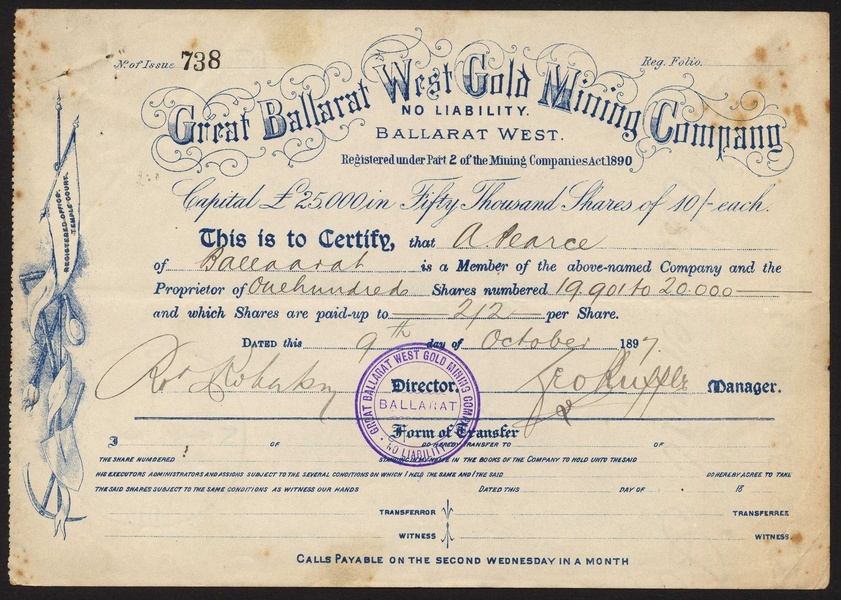 No. of Issue 738
Reg. Folio.
Great Ballarat West Gold Mining Company
NO LIABILITY.
BALLARAT WEST.
Registered under Part 2 of the Mining Companies Act 1890
Capital £25,000 in Fifty Thousand Shares of 10/- each.
REGISTERED OFFICE,
TEMPLE COURT.
This is to Certify, that A. Pearce
of Ballaarat is a Member of the above-named Company and the
Proprietor of One hundred Shares numbered 19.901 to 20.000
and which Shares are paid-up to 2/2 per Share.
DATED this 9th day of October 1897.
Director. Geo Ruffle Manager.
GREAT BALLARAT WEST GOLD MINING COMP
BALLARAT
NO LIABILITY
Form of Transfer
I OF DO HEREBY TRANSFER TO OF
THE SHARE NUMBERED STANDING IN MY NAME IN THE BOOKS OF THE COMPANY TO HOLD UNTO THE SAID
HIS EXECUTORS ADMINISTRATORS AND ASSIGNS SUBJECT TO THE SEVERAL CONDITIONS ON WHICH I HELD THE SAME AND I THE SAID DO HEREBY AGREE TO TAKE
THE SAID SHARES SUBJECT TO THE SAME CONDITIONS AS WITNESS OUR HANDS DATED THIS DAY OF 18
TRANSFERROR TRANSFEREE
WITNESS WITNESS.
CALLS PAYABLE ON THE SECOND WEDNESDAY IN A MONTH